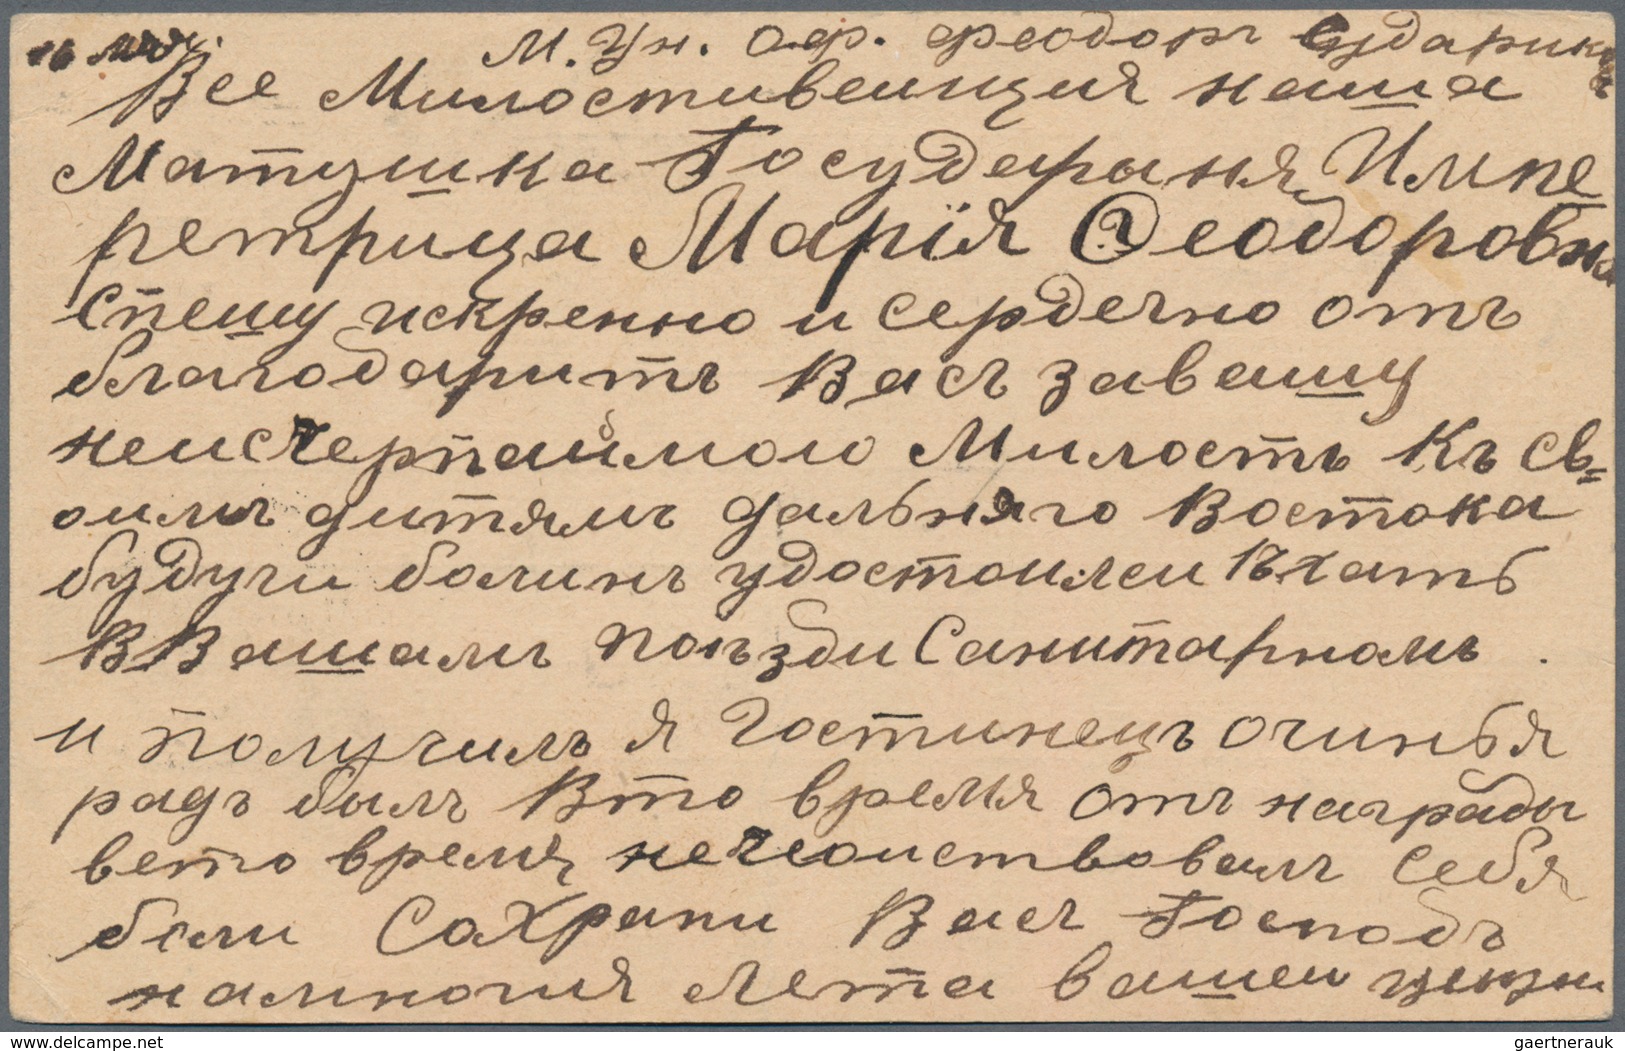 16 мая.
М. Ун. Оф. Феодоръ Сударик
Все Милостивеищия наша
Матушка Государыня Импе
ретрица Марія Феодоровна
Спешу искренно и сердечно отъ
благодарить Васъ за вашу
неисчерпаимою Милость Къ св=
оимъ дитямъ дальняго Востока
будучи болинъ удостоилси ѣхать
В Вашамъ поѣзди Санитарномъ.
и получилъ я гостинецъ очинь я
радъ былъ Вто время отъ награды
вето время нечюиствовалъ Себя
боли Сохрани Васъ Господъ
намногия Лета вашеи
www.delcampe.net
gaertnerauk